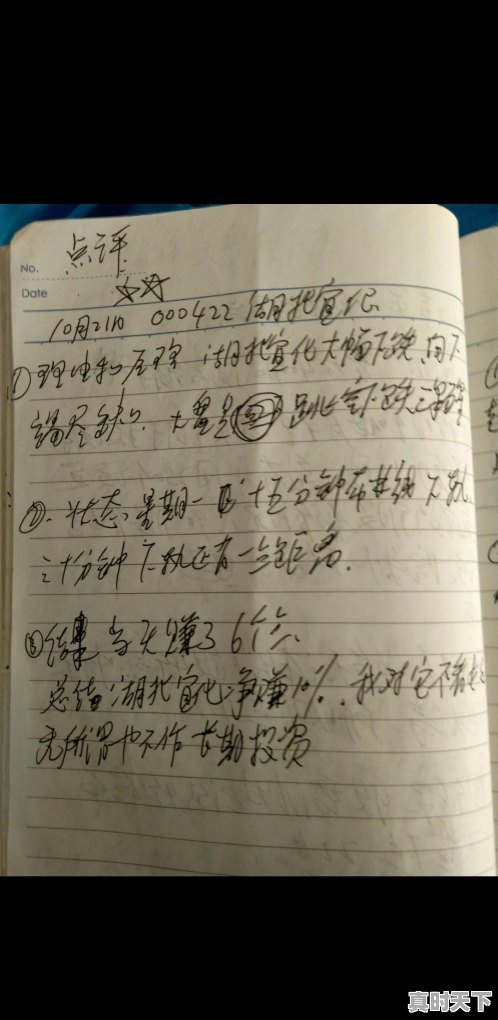 No.
点评
Date
☆☆
10月21日 000422 湖北宜化
① 理由和原理 湖北宜化大幅下跌,向下
大盘是 跳空下跌
②. 状态 星期一 十五分钟布林线下轨
三十分钟下轨还有一点距离.
③结果 当天赚了6个点
总结 湖北宜化净赚10%. 我对它不看好
无所谓也不作长期投资
真时天下